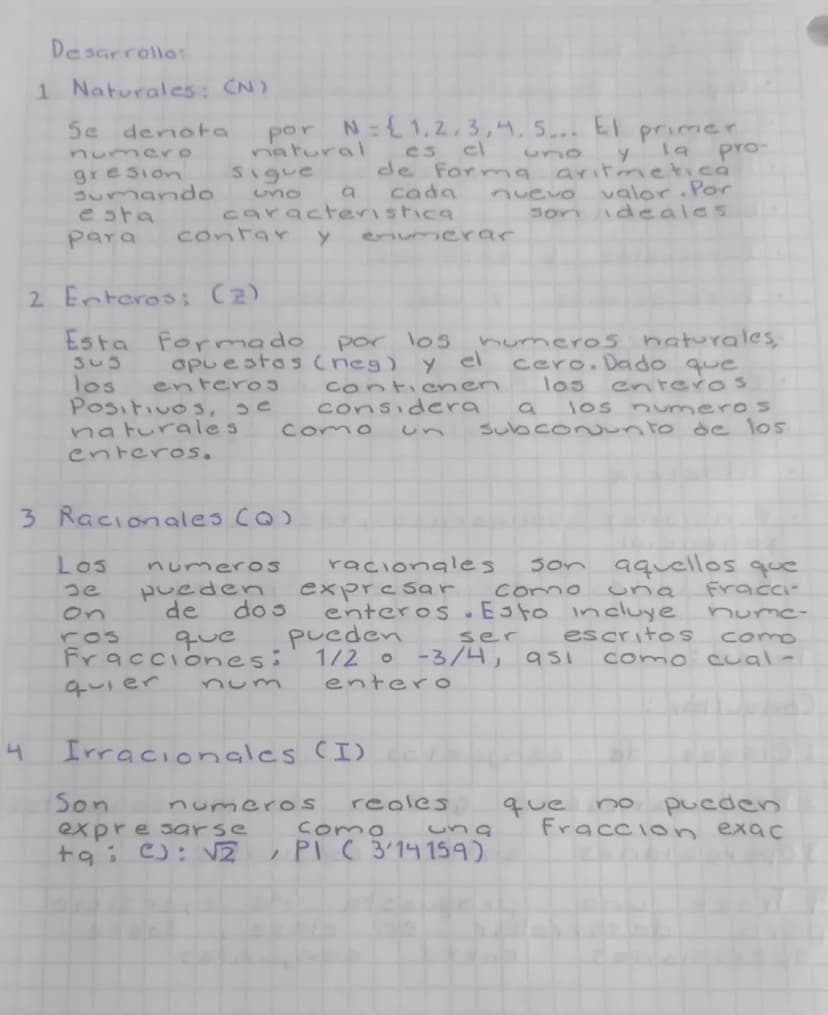 Desarrollo:
1 Naturales: (N)
Se denota por N={1,2,3,4,5... El primer
numero natural es el uno y la pro-
gresion sigue de forma aritmetica
sumando uno a cada nuevo valor. Por
esta caracteristica son ideales
para contar y enumerar
2 Enteros: (Z)
Esta Formado por los numeros naturales,
sus opuestos (neg) y el cero. Dado que
los enteros contienen los enteros
Positivos, se considera a los numeros
naturales como un subconjunto de los
enteros.
3 Racionales (Q)
Los numeros racionales son aquellos que
se pueden expresar como una Fracci-
on de dos enteros. Esto incluye nume-
ros que pueden ser escritos como
Fracciones: 1/2 o -3/4, asi como cual-
quier num entero
4 Irracionales (I)
Son numeros reales que no pueden
expresarse como una Fraccion exac
ta: ej: √2, PI (3'14159)